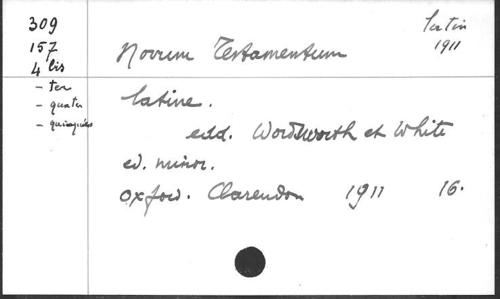 309
157
4 bis
- ter
- quater
- quinquies
Latin
1911
Novum Testamentum
latine.
edd. Wordsworth et White
ed. minor.
Oxford. Clarendon 1911 16.